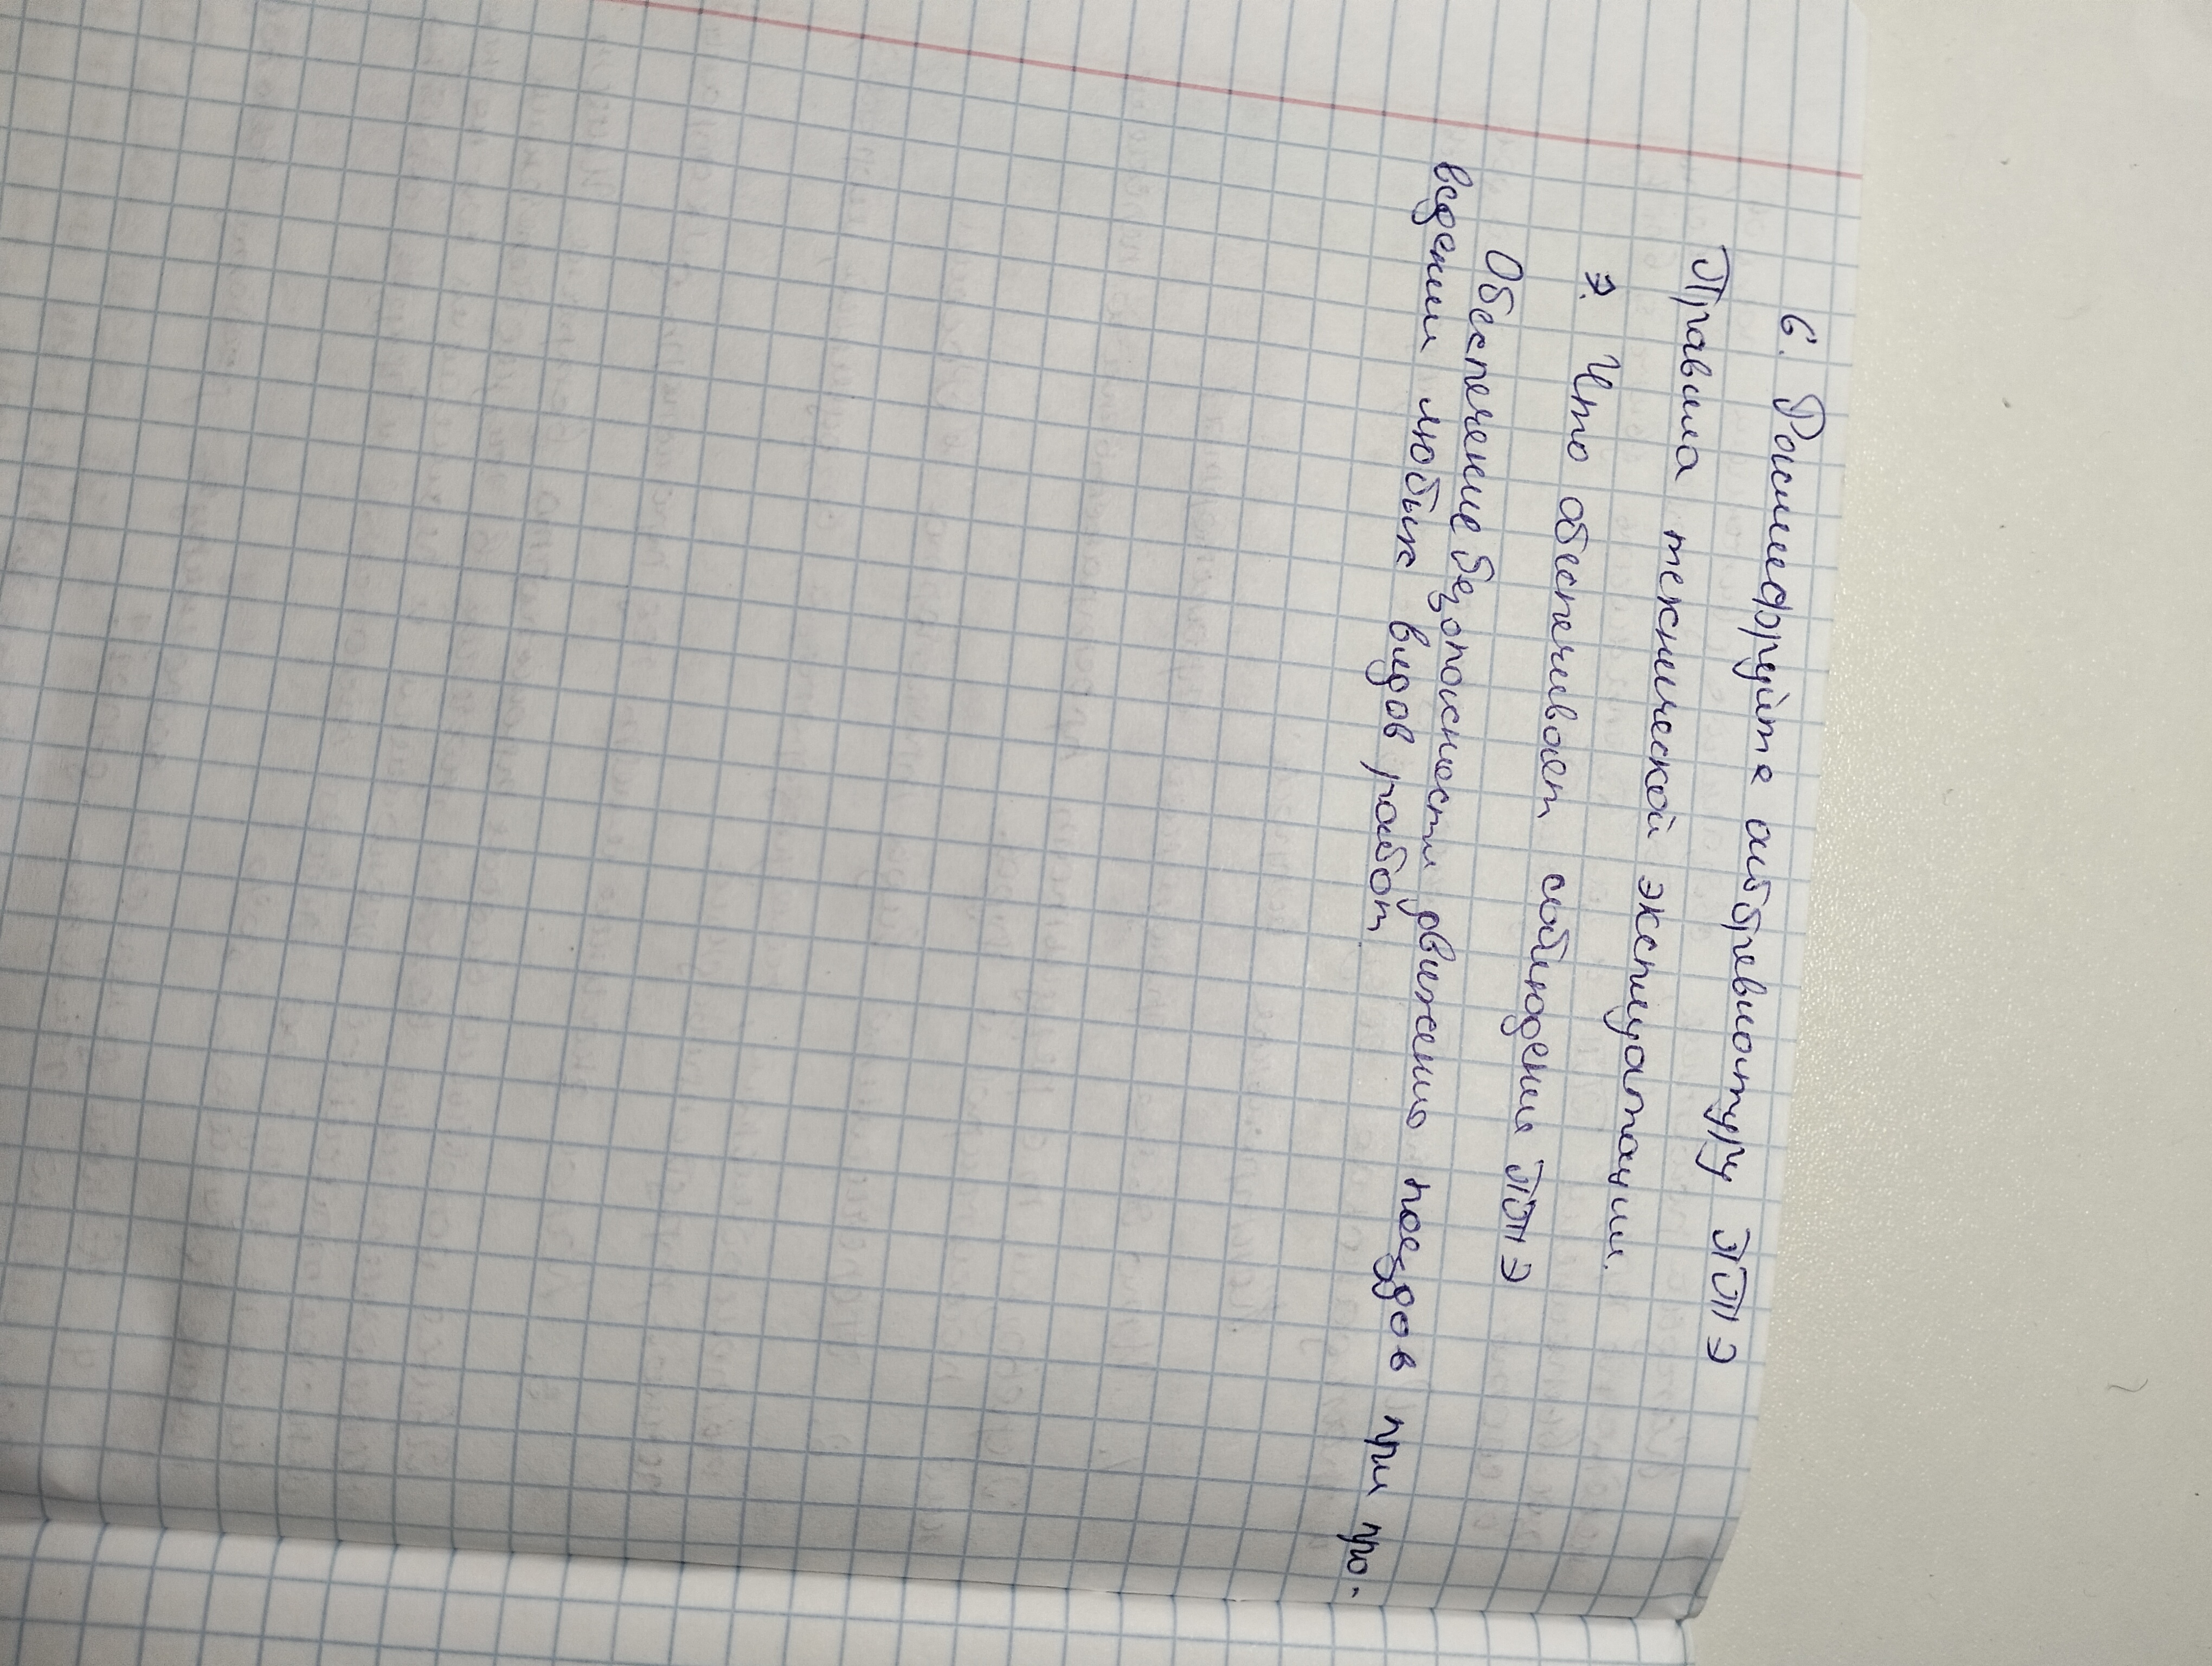 6. Расшифруйте аббревиатуру ПТЭ
Правила технической эксплуатации.
7. Что обеспечивает соблюдение ПТЭ
Обеспечение безопасности движению поездов при про-
ведении любых видов работ